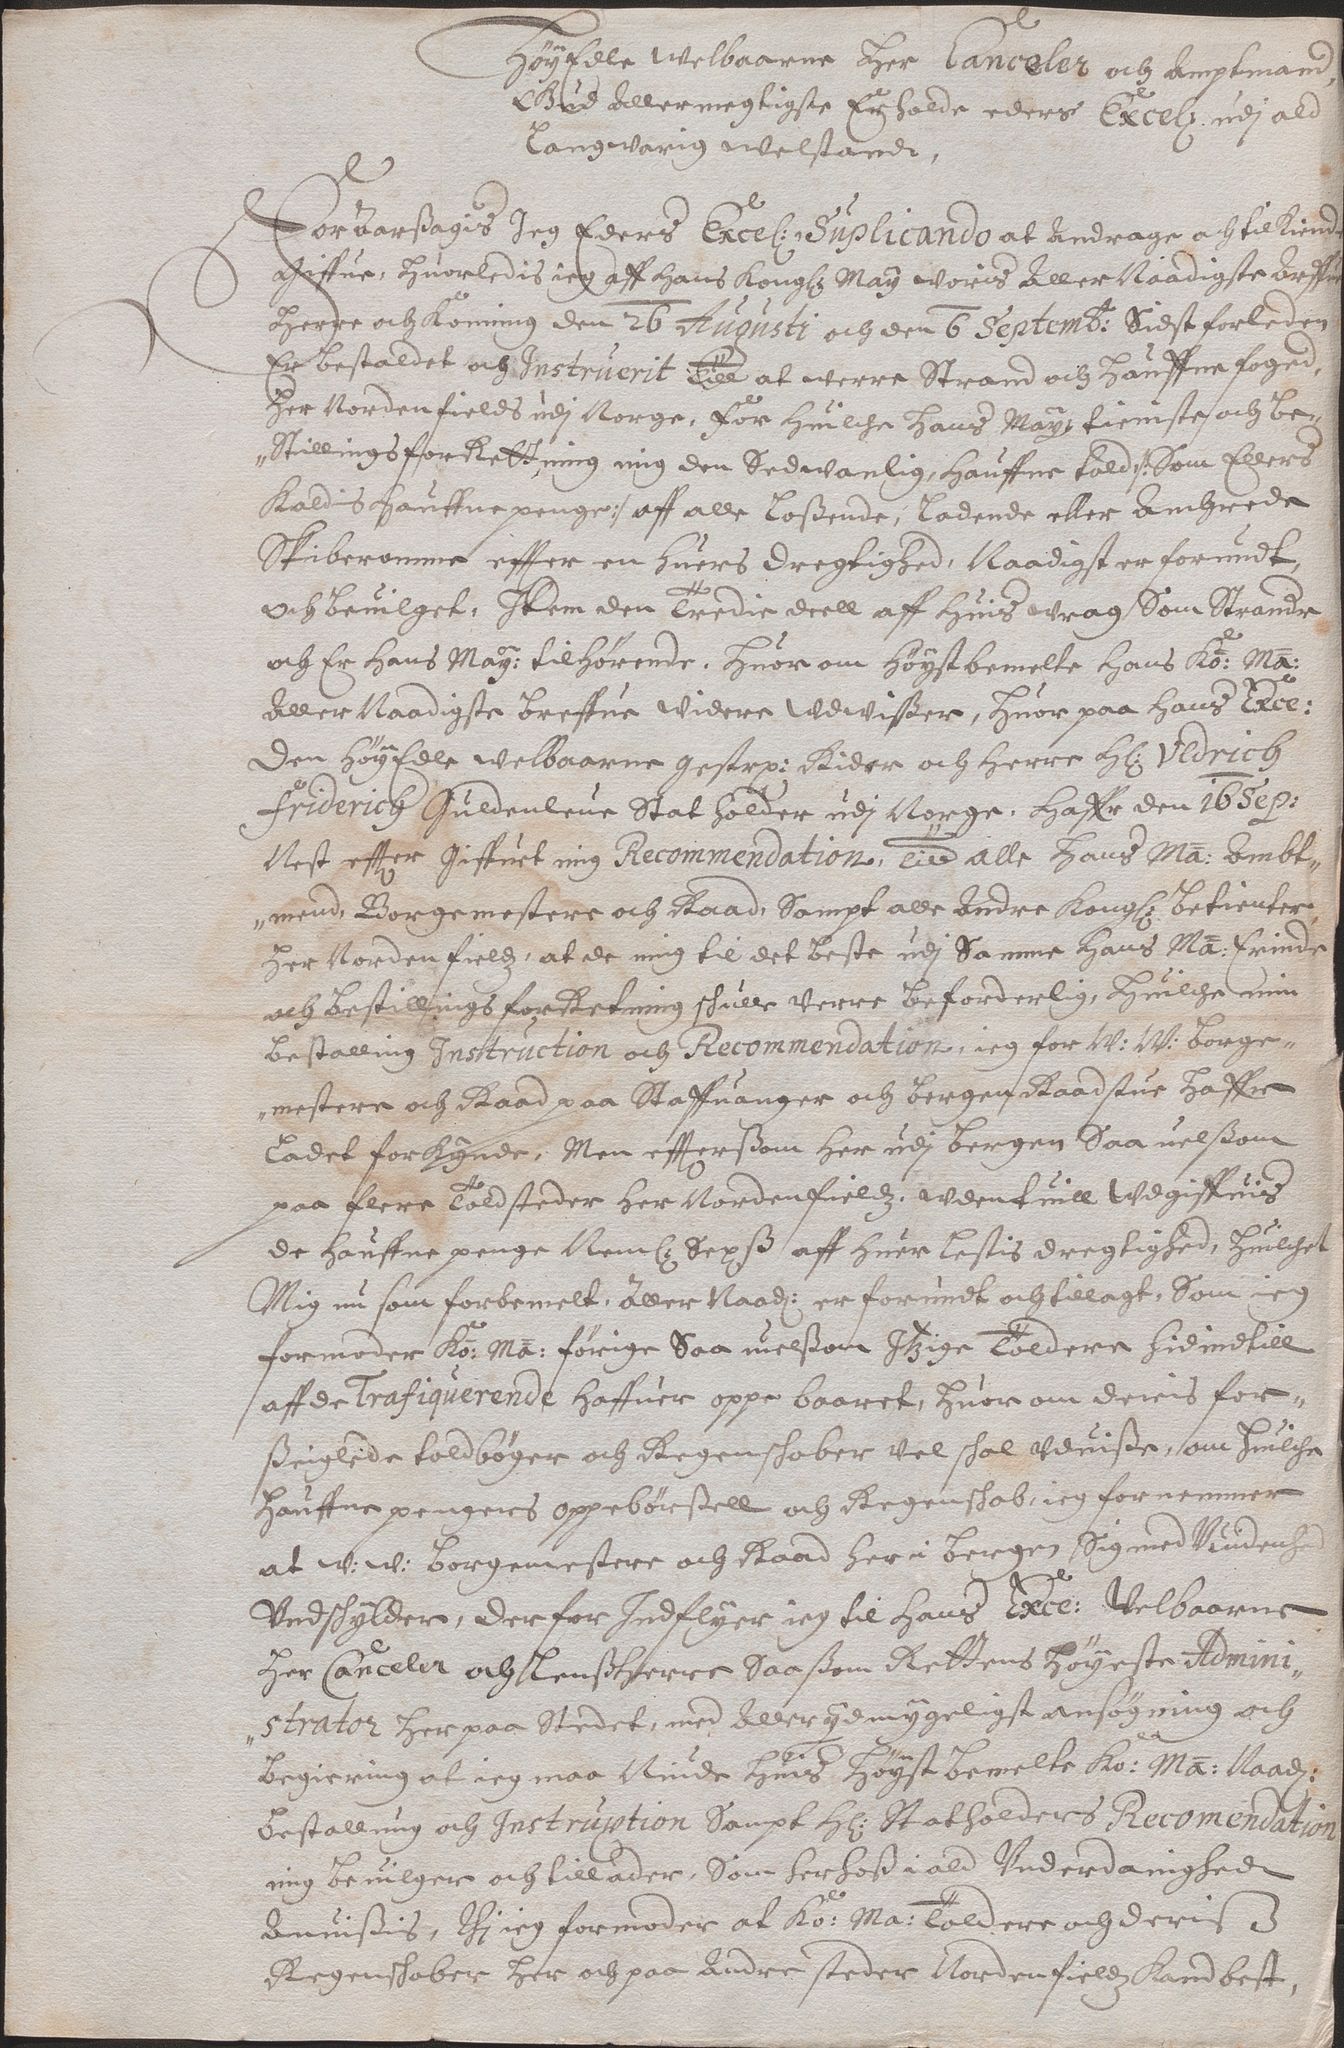 HøyEdle Welbaarne Her Canceler och Amptmand,
Gud Allermegtigste Erholde eders Excel: udj ald
Langvarig Welstand,
Foraarßagis Jeg Eders Excel: Suplicando at Andrage och tilkiende
Giffue, huorledis ieg aff Hans Kongl: May voris Aller Naadigste Arffue
Herre och Konning den 26 Augusti och den 6 Septemb: Sidst forleden
Er bestaldet och Instruerit Till at werre Strand och Hauffne foged,
Her Nordenfields udj Norge, For Huilche Hans May: tieniste och be-
"Stillings forRettning mig den Sedwanlig, Hauffne told /: Som Ellers
Kaldis Hauffne penge :/ aff alle Loßende, Ladende eller Anchrede
Skiberomme effter en huers Dregtighed, Naadigst er forundt,
och beuilget. Item den Tredie deell aff huis wrag Som Strander
och Er Hans May: tilhørende. Huor om Høystbemelte Hans Ko: Ma:
Aller Naadigste breffue Videre Udwißer, Huor paa Hans Exce:
Den HøyEdle Welbaarne Gestr: Rider och Herre Hl: Uldrich
Friderich Guldenleue Stat holder udj Norge. Haffr den 16 Sep:
Nest effter Giffuet mig Recommendation, till alle Hans Ma: Ambt-
"mend, Borgemestere och Raad, Sampt alle Andre Kongl: betienter,
Her Norden field, at de mig til det beste udj Samme Hans Ma: Erinde
och bestillings forRetning schulle verre beforderlig, Huilche min
bestalling Instruction och Recommendation, ieg for W: W: Borge-
"mestere och Raad paa Staffuanger och Bergen Raadstue Haffr
Ladet forKynde, Men effterßom Her udj Bergen Saa uelßom
paa flere Toldsteder Her Nordenfield, udentuill Udgiffuis
de Hauffne penge Neml: Sex ß aff huer Lestis dregtighed, Huilchet
Mig nu som forbemelt, Aller Naad: er forundt och tillagt, Som ieg
formoder Ko: Ma: forige Saa uelßom Itzige Toldere hidindtill
aff de Trafiquerende Haffuer oppebaaret, Huor om deris for-
ßeiglede toldbøger och Regenschaber Vel schal Vduiße, om Huilche
Hauffne pengers oppebørßell och Regenschab, ieg fornemmer
at W: W: Borgemestere och Raad Her i Bergen Sig med Uuidenhed
Undschylder, Derfor Indflyer ieg til Hans Exce: Velbaarne
Her Canceler och Lenßherre Saaßom Rettens Høyeste Admini-
"strator Her paa Stedet, med Allerydmygeligst ansøgning och
begiering at ieg maa Niude huis Høystbemelte Ko: Ma: Naad:
bestalling och Instruction Sampt Hl: Statholders Recomendation
mig beuilger och tillader, Som herhoß i ald Underdanighed
Anuißis, Thj ieg formoder at Ko: Ma: Toldere och deris
Regenschaber Her och paa Andre steder Nordenfield Kand best,